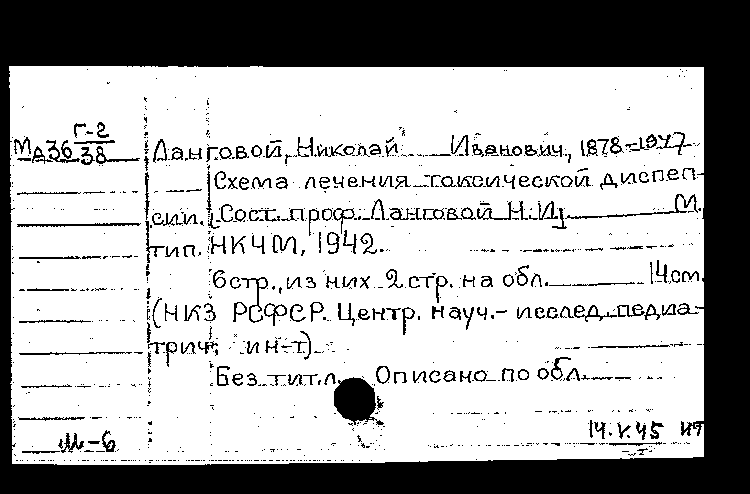 Г-2
Мд36 38 Ланговой, Николай Иванович, 1878-1947
Схема лечения токсической диспеп-
сии. [Сост. проф. Ланговой Н.И] М.,
тип. НКЧМ, 1942.
6стр., из них 2 стр. на обл. 14см.
(НКЗ РСФСР. Центр. науч.- исслед. педиа-
трич. ин-т)
Без тит.л. Описано по обл.
М-6 14.V.45